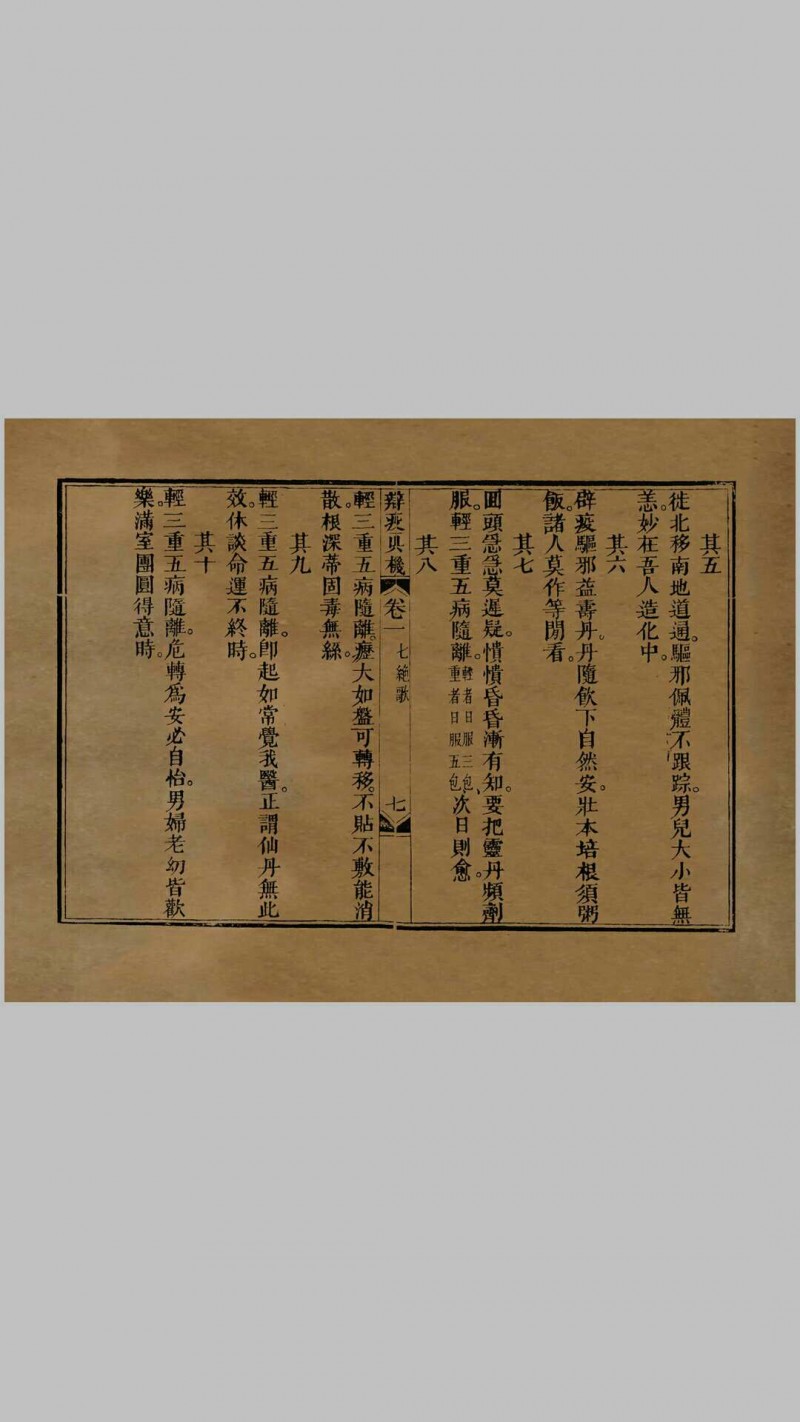 其五
徙北移南地道通。驅邪佩體不跟踪。男兒大小皆無
恙。妙在吾人造化中。
其六
辟疫驅邪益壽丹。丹隨飲下自然安。壯本培根須粥
飯。諸人莫作等閒看。
其七
回頭急急莫遲疑。憒憒昏昏漸有知。要把靈丹頻劑
服。輕三重五病隨離。輕者日服三包、重者日服五包、次日則愈。
其八
辯疫真機 卷一 七絕歌 七
輕三重五病隨離。癧大如盤可轉移。不貼不敷能消
散。根深蒂固毒無絲。
其九
輕三重五病隨離。卽起如常覺我醫。正謂仙丹無此
效。休談命運不終時。
其十
輕三重五病隨離。危轉為安必自怡。男婦老幼皆歡
樂。滿室團圓得意時。